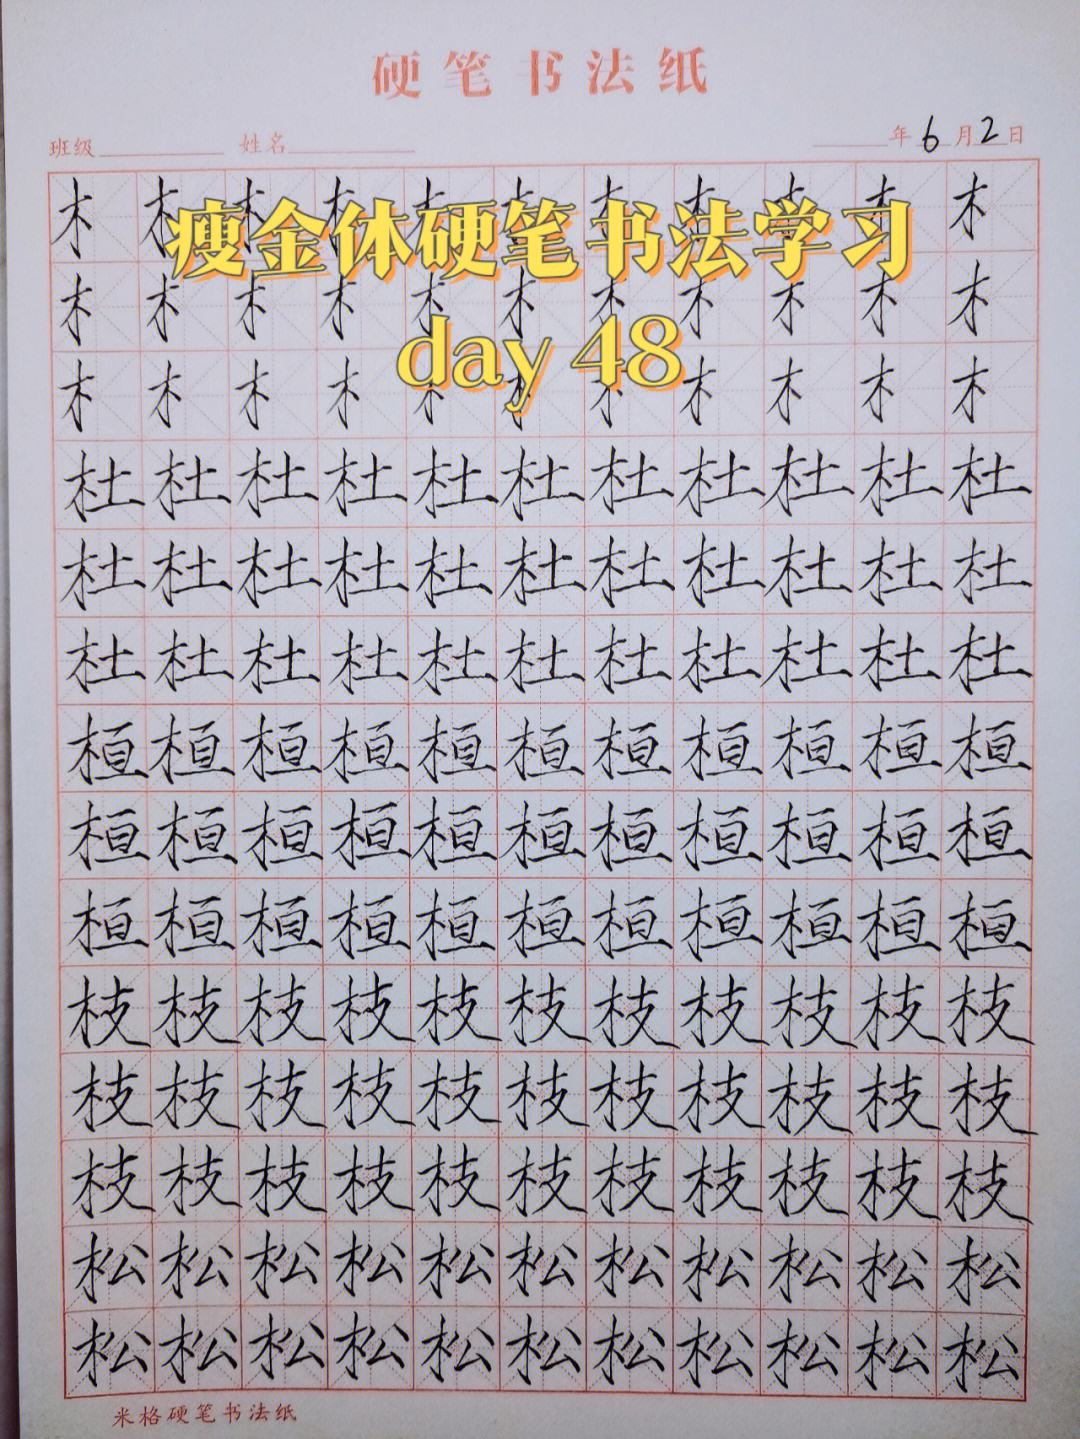 硬笔书法纸
班级 姓名 年6月2日
木木木木木木木木木木木
瘦金体硬笔书法学习
木木木木木木木木木木木
day 48
木木木木木木木木木木木
杜杜杜杜杜杜杜杜杜杜杜
杜杜杜杜杜杜杜杜杜杜杜
杜杜杜杜杜杜杜杜杜杜杜
桓桓桓桓桓桓桓桓桓桓桓
桓桓桓桓桓桓桓桓桓桓桓
桓桓桓桓桓桓桓桓桓桓桓
枝枝枝枝枝枝枝枝枝枝枝
枝枝枝枝枝枝枝枝枝枝枝
枝枝枝枝枝枝枝枝枝枝枝
松松松松松松松松松松松
松松松松松松松松松松松
米格硬笔书法纸